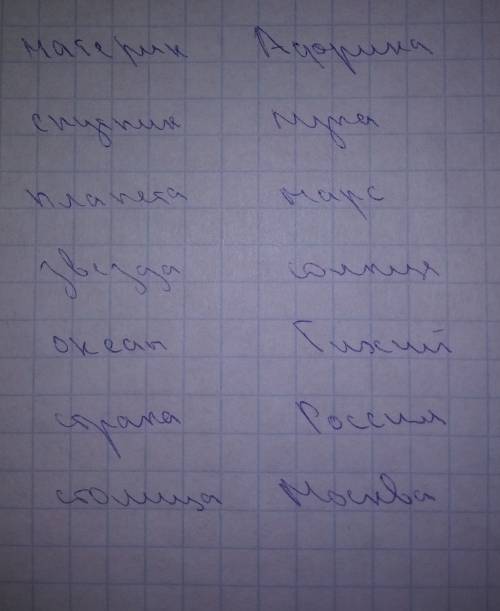 материк Африка
спутник луна
планета марс
звезда солнця
океан Тихий
страна Россия
столица Москва